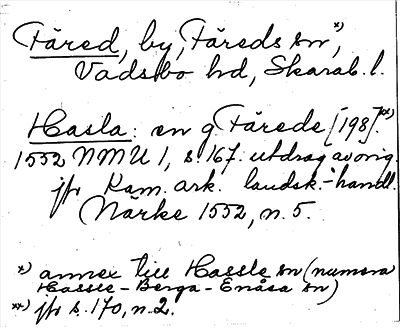 Färed, by, Färeds sn*),
Vadsbo hd, Skarab. l.
Hasla: en g Färede [198]**)
1552 NMU 1, s. 167. utdrag av orig.
jfr Kam. ark. landsk.-handl.
Närke 1552, n. 5.
*) annex till Hassle sn (numera
Hassle-Berga-Enåsa sn)
**) jfr s. 170, n. 2.